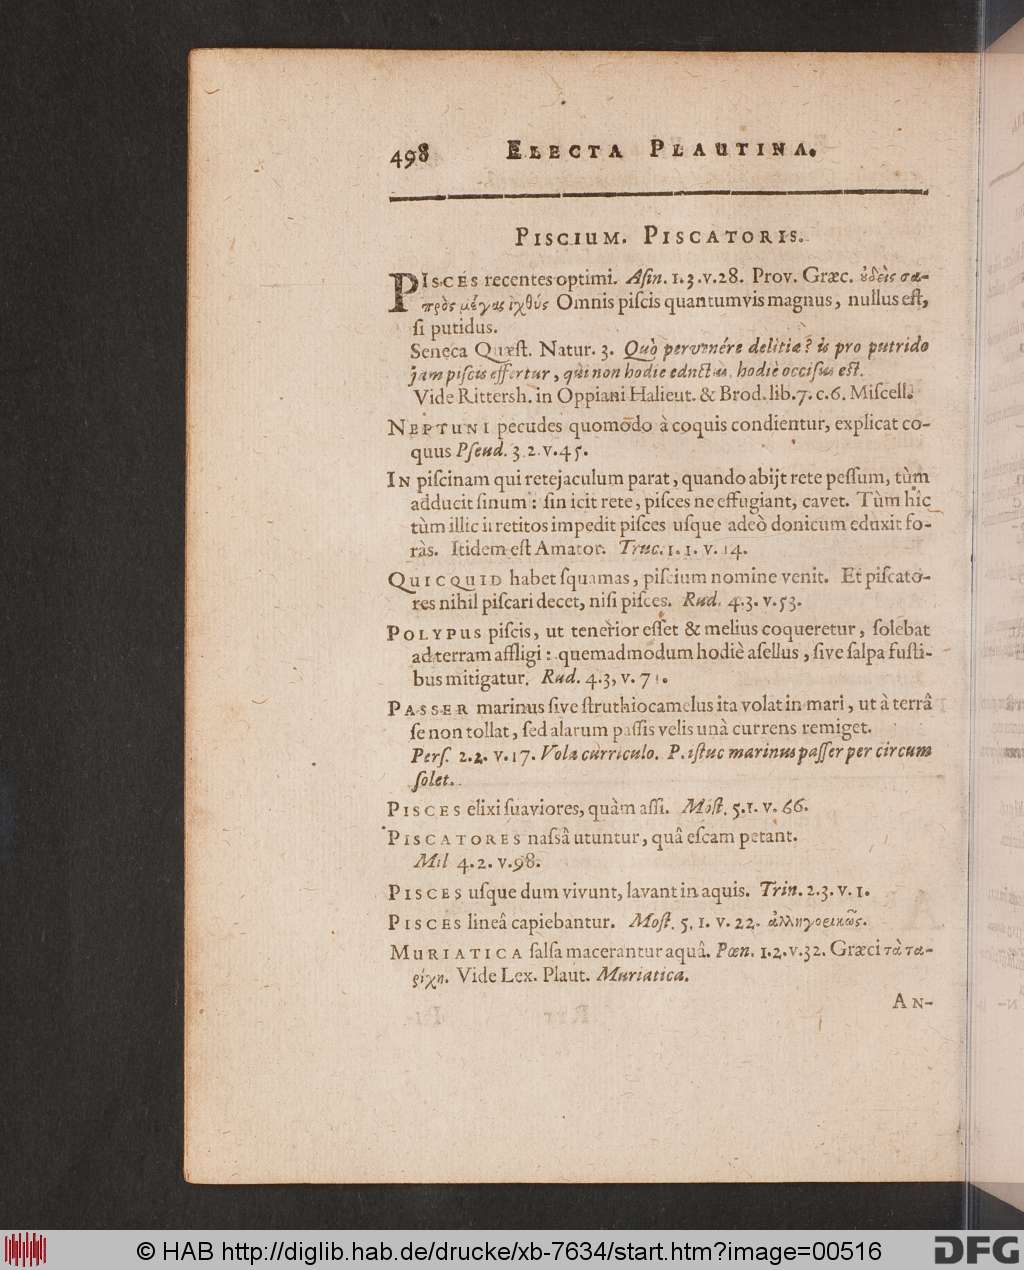 498 ELECTA PLAUTINA.
PISCIUM. PISCATORIS.
PISCES recentes optimi. Asin. 1. 3. v. 28. Prov. Græc. ὐδεὶς σα-
πρὸς μέγας ἰχθύς Omnis piſcis quantumvis magnus, nullus eſt,
ſi putidus.
Seneca Quæſt. Natur. 3. Quò pervenére delitiæ? is pro putrido
jam piſcis effertur, qui non hodie eductus, hodiè occiſus eſt.
Vide Rittersh. in Oppiani Halieut. & Brod. lib. 7. c. 6. Miſcell.
NEPTUNI pecudes quomodo à coquis condientur, explicat co-
quus Pſeud. 3. 2. v. 45.
IN piſcinam qui retejaculum parat, quando abijt rete peſſum, tùm
adducit ſinum: ſin icit rete, piſces ne effugiant, cavet. Tùm hîc
tùm illic iiretitos impedit piſces uſque adeò donicum eduxit fo-
ràs. Itidem eſt Amator. Truc. 1. 1. v. 14.
QUICQUID habet ſquamas, piſcium nomine venit. Et piſcato-
res nihil piſcari decet, niſi piſces. Rud. 4. 3. v. 53.
POLYPUS piſcis, ut tenerior eſſet & melius coqueretur, ſolebat
ad terram affligi: quemadmodum hodiè aſellus, ſive ſalpa fuſti-
bus mitigatur. Rud. 4. 3, v. 71.
PASSER marinus ſive ſtruthiocamelus ita volat in mari, ut à terrâ
ſe non tollat, ſed alarum paſſis velis unà currens remiget.
Perſ. 2. 2. v. 17. Vola curriculo. P. iſtuc marinus paſſer per circum
ſolet.
PISCES elixi ſuaviores, quàm aſſi. Moſt. 5. 1. v. 66.
PISCATORES naſsâ utuntur, quâ eſcam petant.
Mil 4. 2. v. 98.
PISCES uſque dum vivunt, lavant in aquis. Trin. 2. 3. v. 1.
PISCES lineâ capiebantur. Moſt. 5, 1. v. 22. ἀλληγορικῶς.
MURIATICA ſalſa macerantur aquâ. Pœn. 1. 2. v. 32. Græci τὰ τα-
ρίχη. Vide Lex. Plaut. Muriatica.
AN-
© HAB http://diglib.hab.de/drucke/xb-7634/start.htm?image=00516
DFG